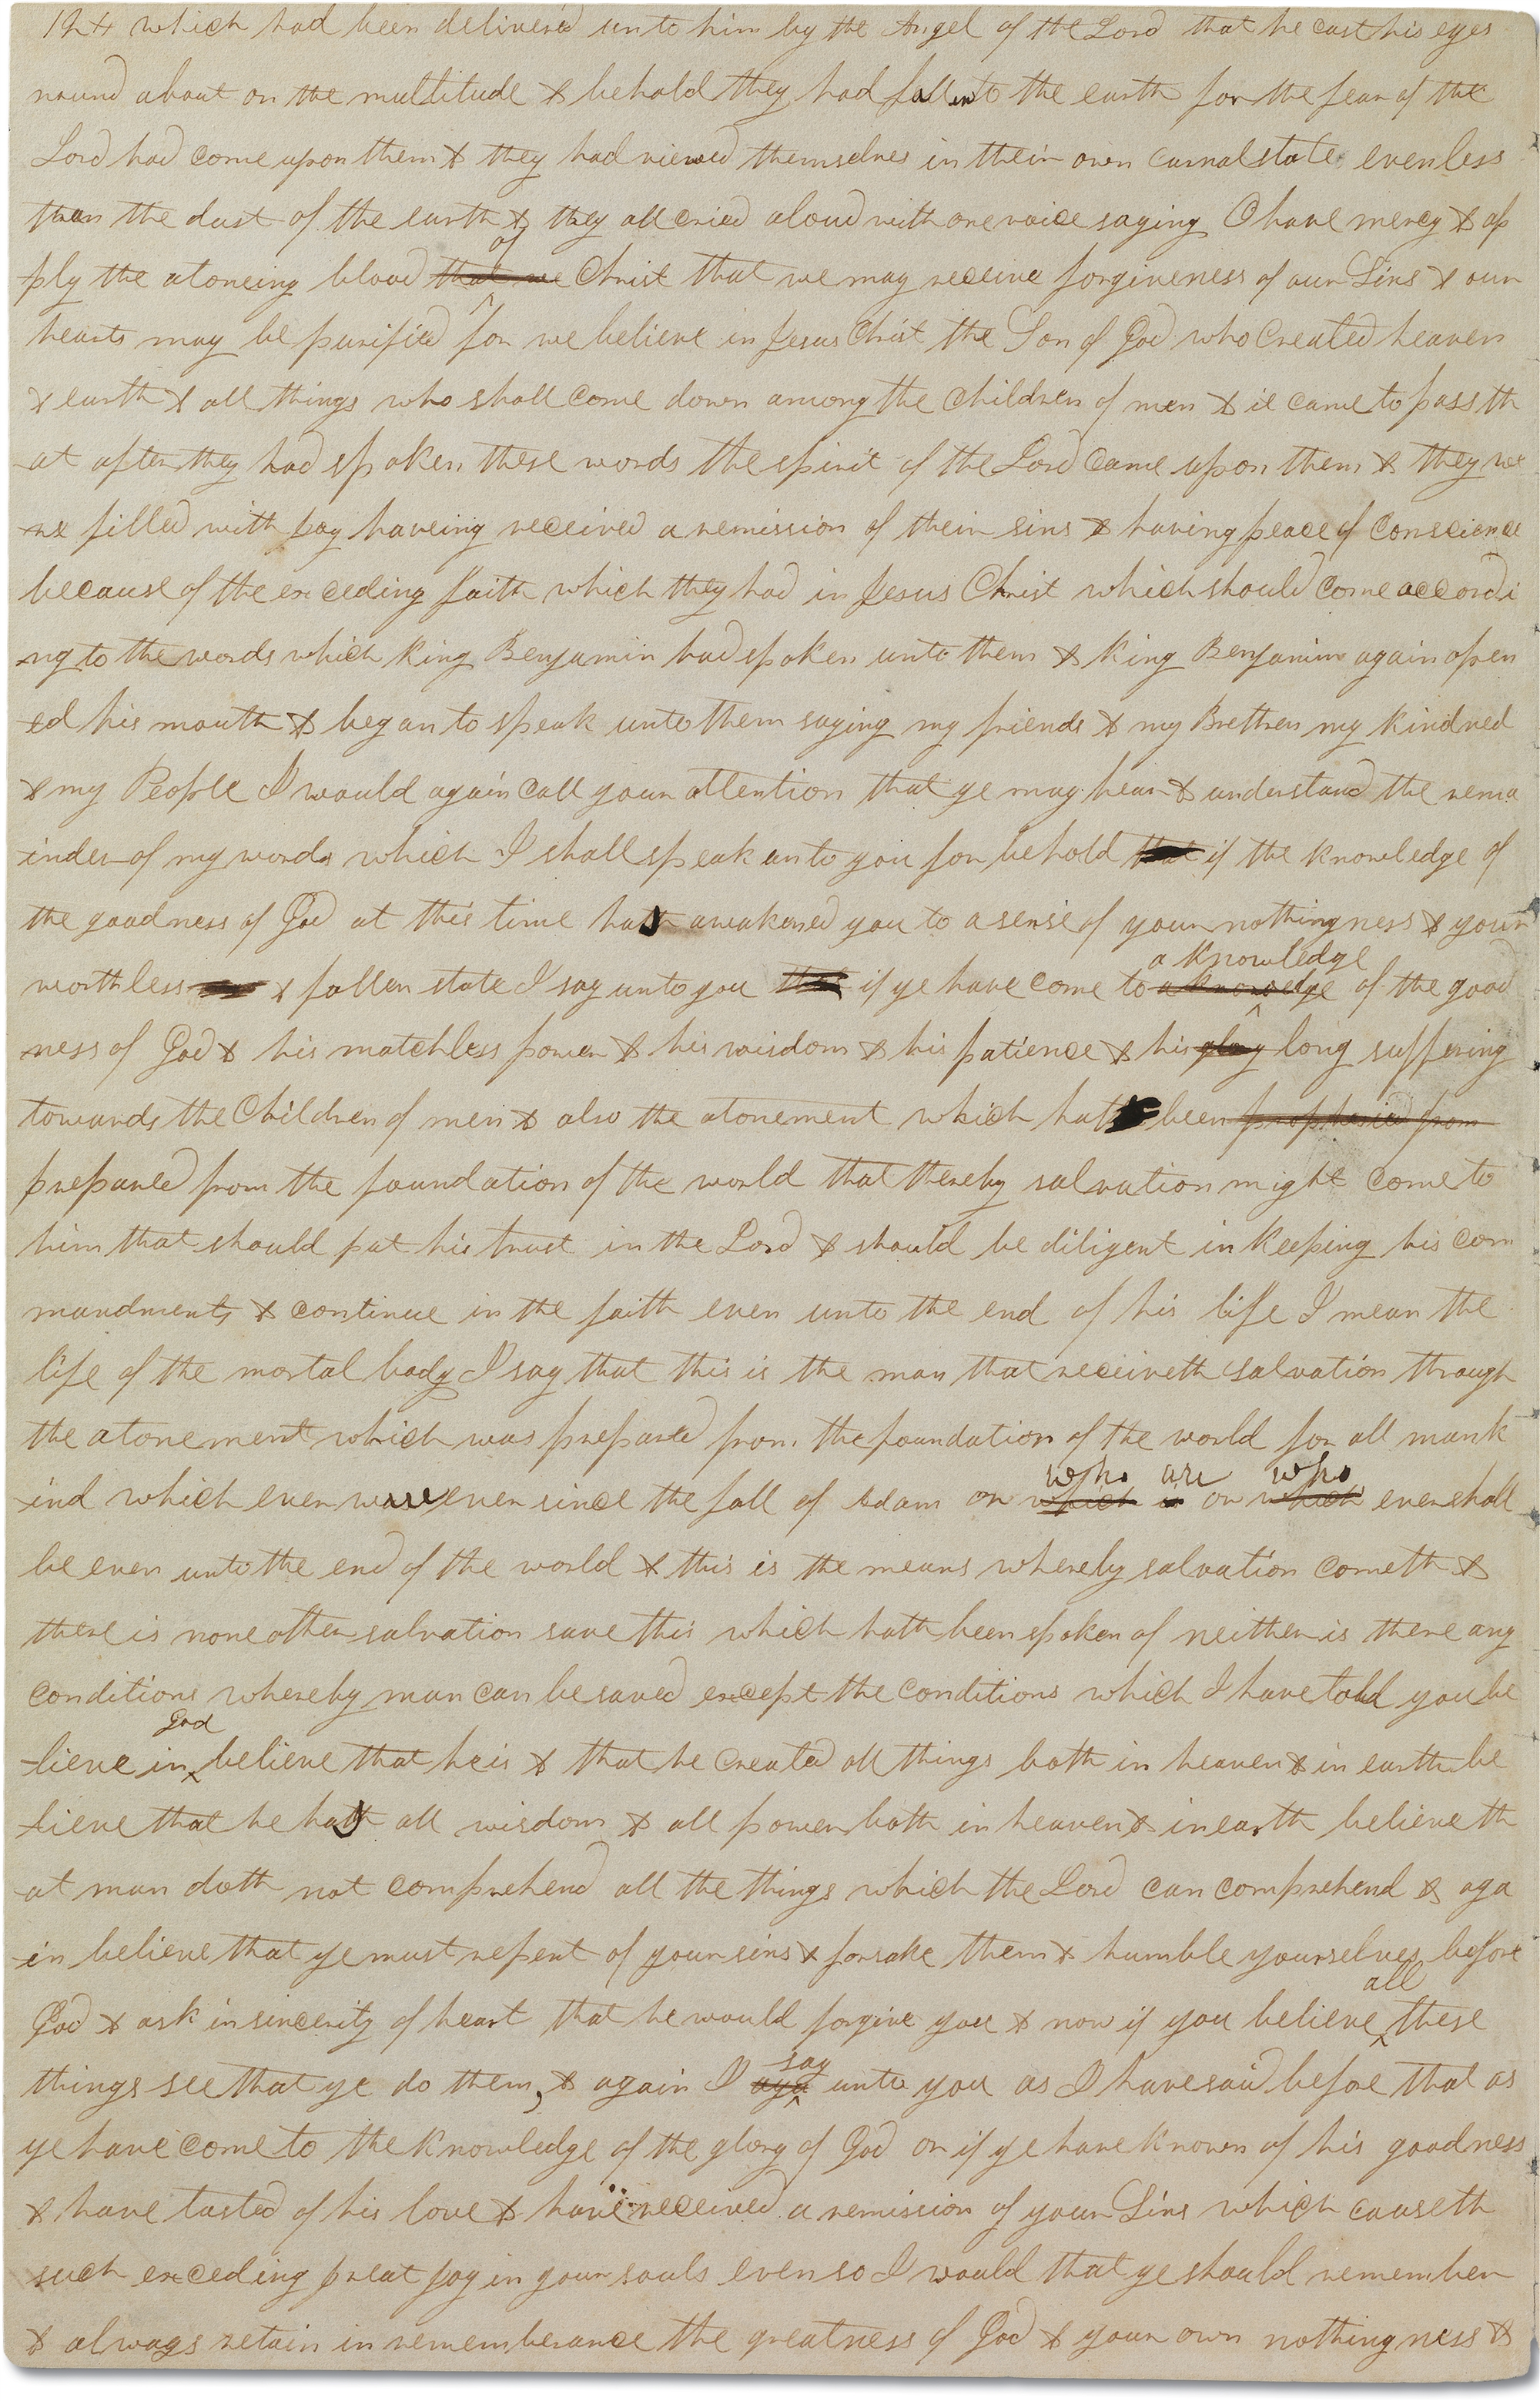 124 which had been deliverd unto him by the Angel of the Lord that he cast his eyes
round about on the multitude & behold they had fallen to the earth for the fear of the
Lord had come upon them & they had viewed themselves in their own carnal state even less
than the dust of the earth & they all cried aloud with one voice saying O have mercy & ap
ply the atoneing blood that we of Christ that we may receive forgiveness of our Sins & our
hearts may be purified for we believe in Jesus Christ the Son of God who Created heaven
& earth & all things who shall come down among the Children of men & it came to pass th
at after they had spoken these words the spirit of the Lord came upon them & they we
re filled with joy haveing received a remission of their sins & having peace of Conscience
because of the exceding faith which they had in Jesus Christ which should come accordi
ng to the words which King Benjamin had spoken unto them & King Benjamin again open
ed his mouth & began to speak unto them saying my friends & my Brethren my kindred
& my People I would again call your attention that ye may hear & understand the rema
inder of my words which I shall speak unto you for behold that if the knowledge of
the goodness of God at this time has awakened you to a sense of your nothingness & your
worthless & fallen state I say unto you that if ye have come to a knowedge a knowledge of the good
ness of God & his matchless power & his wisdom & his patience & his glory long suffering
towards the Children of men & also the atonement which hath been prophesied from
prepared from the foundation of the world that thereby salvation might come to
him that should put his trust in the Lord & should be diligent in keeping his com
mandments & continue in the faith even unto the end of his life I mean the
life of the mortal body I say that this is the man that receiveth salvation through
the atonement which was prepared from the foundation of the world for all mank
ind which ever were ever since the fall of Adam or which is who are or which who ever shall
be even unto the end of the world & this is the means whereby salvation cometh &
there is none other salvation save this which hath been spoken of neither is there any
conditions whereby man can be saved except the conditions which I have told you be
lieve in God believe that he is & that he created all things both in heaven & in earth be
lieve that he has all wisdom & all power both in heaven & in earth believe th
at man doth not comprehend all the things which the Lord can comprehend & aga
in believe that ye must repent of your sins & forsake them & humble yourselves before
God & ask in sincerity of heart that he would forgive you & now if you believe all these
things see that ye do them, & again I aya say unto you as I have said before that as
ye have come to the knowledge of the glory of God or if ye have known of his goodness
& have tasted of his love & have received a remission of your Sins which causeth
such exceding great joy in your souls even so I would that ye should remember
& always retain in rememberance the greatness of God & your own nothingness &